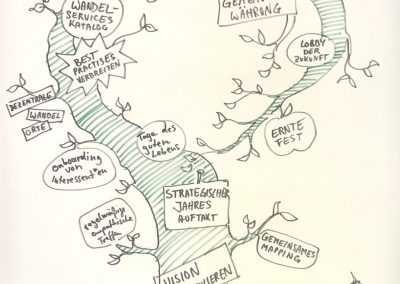 WANDEL-
SERVICES
KATALOG
GEMEIN
WÄHRUNG
BEST
PRACTISES
VERBREITEN
LOBBY
DER
ZUKUNFT
DEZENTRALE
WANDEL
ORTE
Tage des
guten
Lebens
ERNTE
FEST
Onboarding
von
Interessent*en
STRATEGISCHER
JAHRES
AUFTAKT
regelmäßige
empathische
Treffen
GEMEINSAMES
MAPPING
VISION